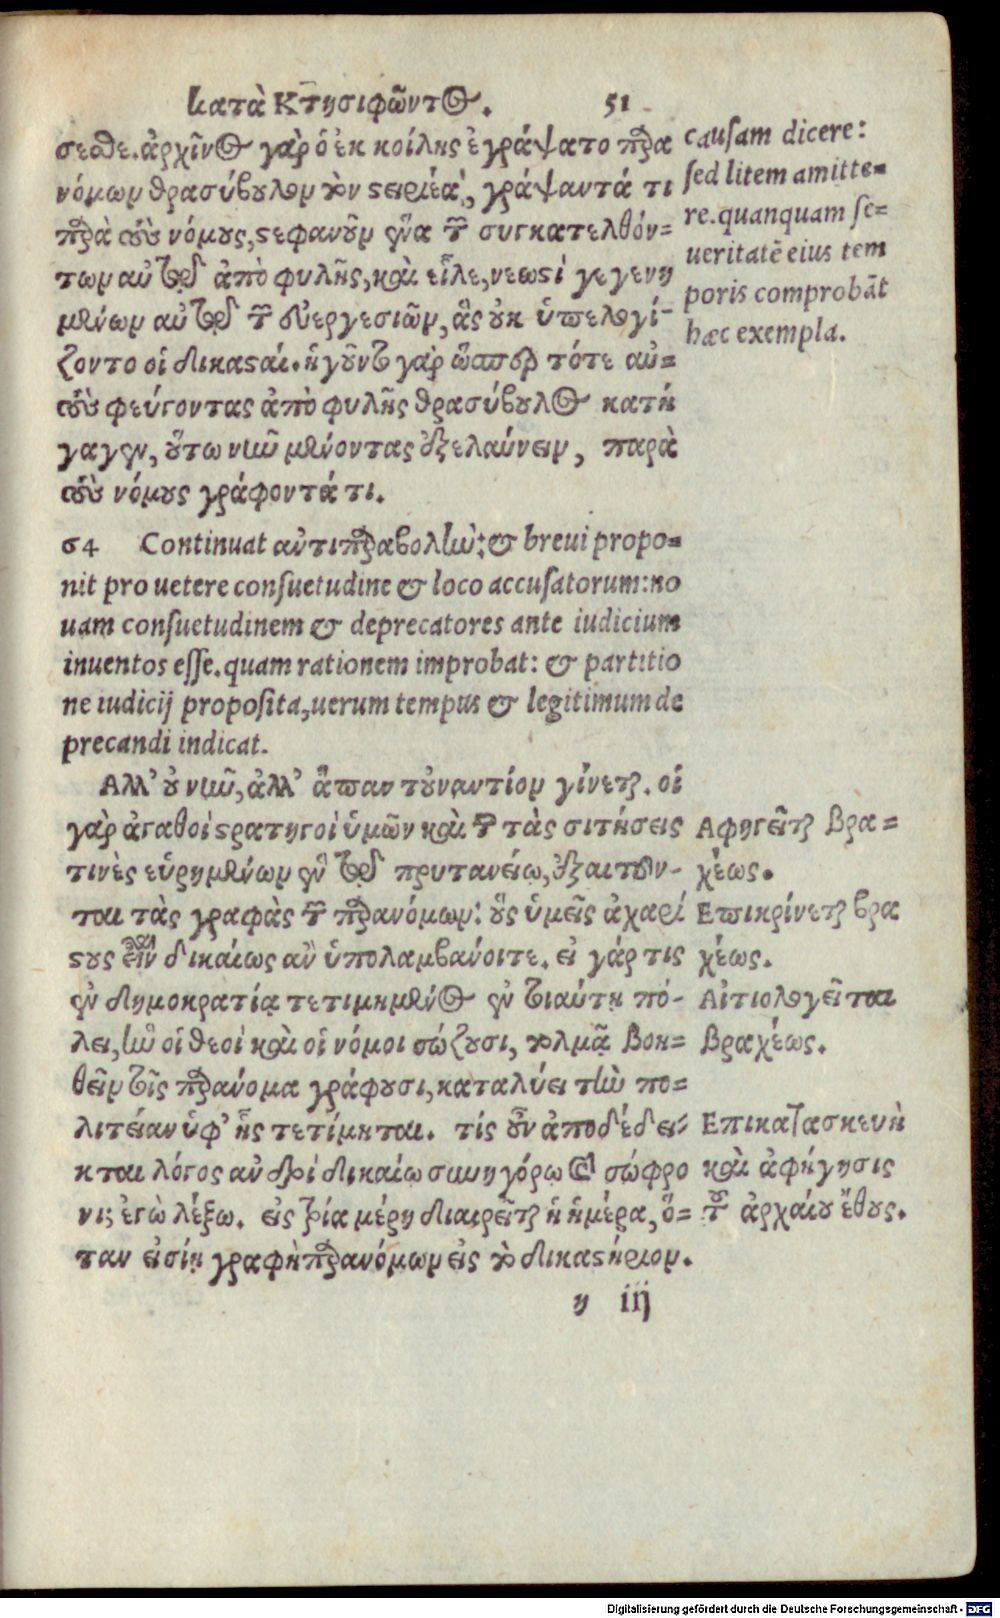 κατὰ Κτησιφῶντος. 51
σεσθε. ἀρχῖνος γὰρ ὁ ἐκ κοίλης ἐγράψατο παρα
νόμων θρασύβουλον τὸν στειριέα, γράψαντά τι
παρὰ τοὺς νόμους, στεφανοῦν ἕνα τῶν συγκατελθόν=
των αὐτῷ ἀπὸ φυλῆς, καὶ εἷλε, νεωστὶ γεγενη
μένων αὐτῷ τῶν εὐεργεσιῶν, ἃς οὐκ ὑπελογί-
ζοντο οἱ δικασταί. ἡγοῦντο γὰρ ὥσπερ τότε αὐ=
τοὺς φεύγοντας ἀπὸ φυλῆς θρασύβουλος κατή
γαγεν, οὕτω νῦν μένοντας ἐξελαύνειν, παρὰ
τοὺς νόμους γράφοντά τι.
causam dicere:
sed litem amitte=
re. quanquam se=
ueritatē eius tem
poris comprobāt
hæc exempla.
σ4 Continuat ἀντιπαραβολὴν: & breui propo=
nit pro uetere consuetudine & loco accusatorum: no
uam consuetudinem & deprecatores ante iudicium
inuentos esse. quam rationem improbat: & partitio
ne iudicij proposita, uerum tempus & legitimum de
precandi indicat.
Αλλ’ οὐ νῦν, ἀλλ’ ἅπαν τοὐναντίον γίνεται. οἱ
γὰρ ἀγαθοὶ στρατηγοὶ ὑμῶν καὶ τῶν τὰς σιτήσεις
τινὲς εὑρημένων ἐν τῷ πρυτανείῳ, ἐξαιτοῦν-
ται τὰς γραφὰς τῶν παρανόμων: οὓς ὑμεῖς ἀχαρί
στους εἶναι δικαίως ἂν ὑπολαμβάνοιτε. εἰ γάρ τις
ἐν δημοκρατίᾳ τετιμημένος ἐν τοιαύτῃ πό-
λει, ἣν οἱ θεοὶ καὶ οἱ νόμοι σώζουσι, τολμᾷ βοη=
θεῖν τοῖς παράνομα γράφουσι, καταλύει τὴν πο=
λιτείαν ὑφ’ ἧς τετίμηται. τίς οὖν ἀποδέδει-
κται λόγος ἀνδρὶ δικαίῳ συνηγόρῳ καὶ σώφρο
νι; ἐγὼ λέξω. εἰς τρία μέρη διαιρεῖται ἡ ἡμέρα, ὅ=
ταν εἰσίῃ γραφὴ παρανόμων εἰς τὸ δικαστήριον.
Αφηγεῖται βρα=
χέως.
Επικρίνεται βρα
χέως.
Αἰτιολογεῖται
βραχέως.
Επικατασκευὴ
καὶ ἀφήγησις
τοῦ ἀρχαίου ἔθους.
η iij
Digitalisierung gefördert durch die Deutsche Forschungsgemeinschaft - DFG